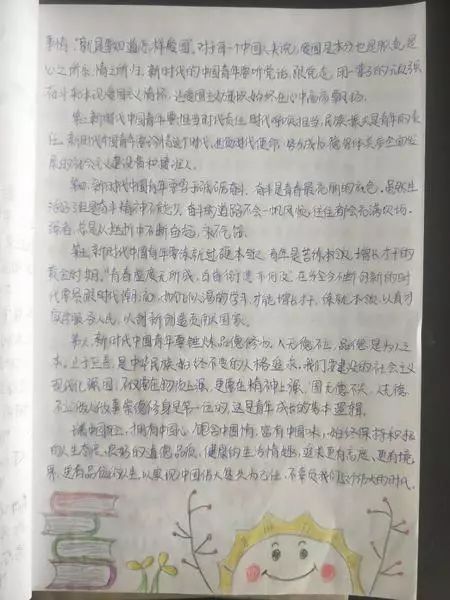 事情,"就是要知道怎样爱国"。对于每一个中国人来说,爱国是本分也是职责,是
心之所系,情之所归。新时代的中国青年要听党话,跟党走,用一辈子的
奋斗和本 爱国主义情怀,让爱国主义的旗帜始终在心中高高飘扬。
第三,新时代中国青年要担当时代责任,时代呼唤担当,民族振兴是青年的责
任。新时代中国青年要珍惜这个时代,担负时代使命,努力成为德智体美劳全面发
展的社会主义建设者和接班人。
第四,新时代中国青年要勇于砥砺奋斗,奋斗是青春最亮丽的底色。虽然生
活 但是奋斗精神不能少,奋斗的道路不会一帆风顺,往往都会充满坎坷。
强者,总是从挫折中不断奋起,永不气馁。
第五,新时代中国青年要练就过硬本领,青年是苦练本领、增长才干的
黄金时期。"青春虚度无所成,白首衔悲不可及"。在 日新的时
代要
实学服务人民,以创新创造贡献国家。
第六,新时代中国青年要锤炼品德修为,人无德不立,品德是为人之
本。止于至善,是中华民族始终不变的人格追求,我们要建设的社会主义
现代化强国,不仅要在物质上强,更要在精神上强。国无德不兴,人无德
不立,做人做事崇德修身是第一位的,这是青年成长的基本逻辑。
请中国 ,拥有中国心,饱含中国情,富有中国味,始终保持积极
的人生态度、良好的道德品质、健康的生活情趣,追求更有高度、更有境
界、更有品位的人生,以实现中国伟大复兴为己任,不辜负我们这个伟大的时代。